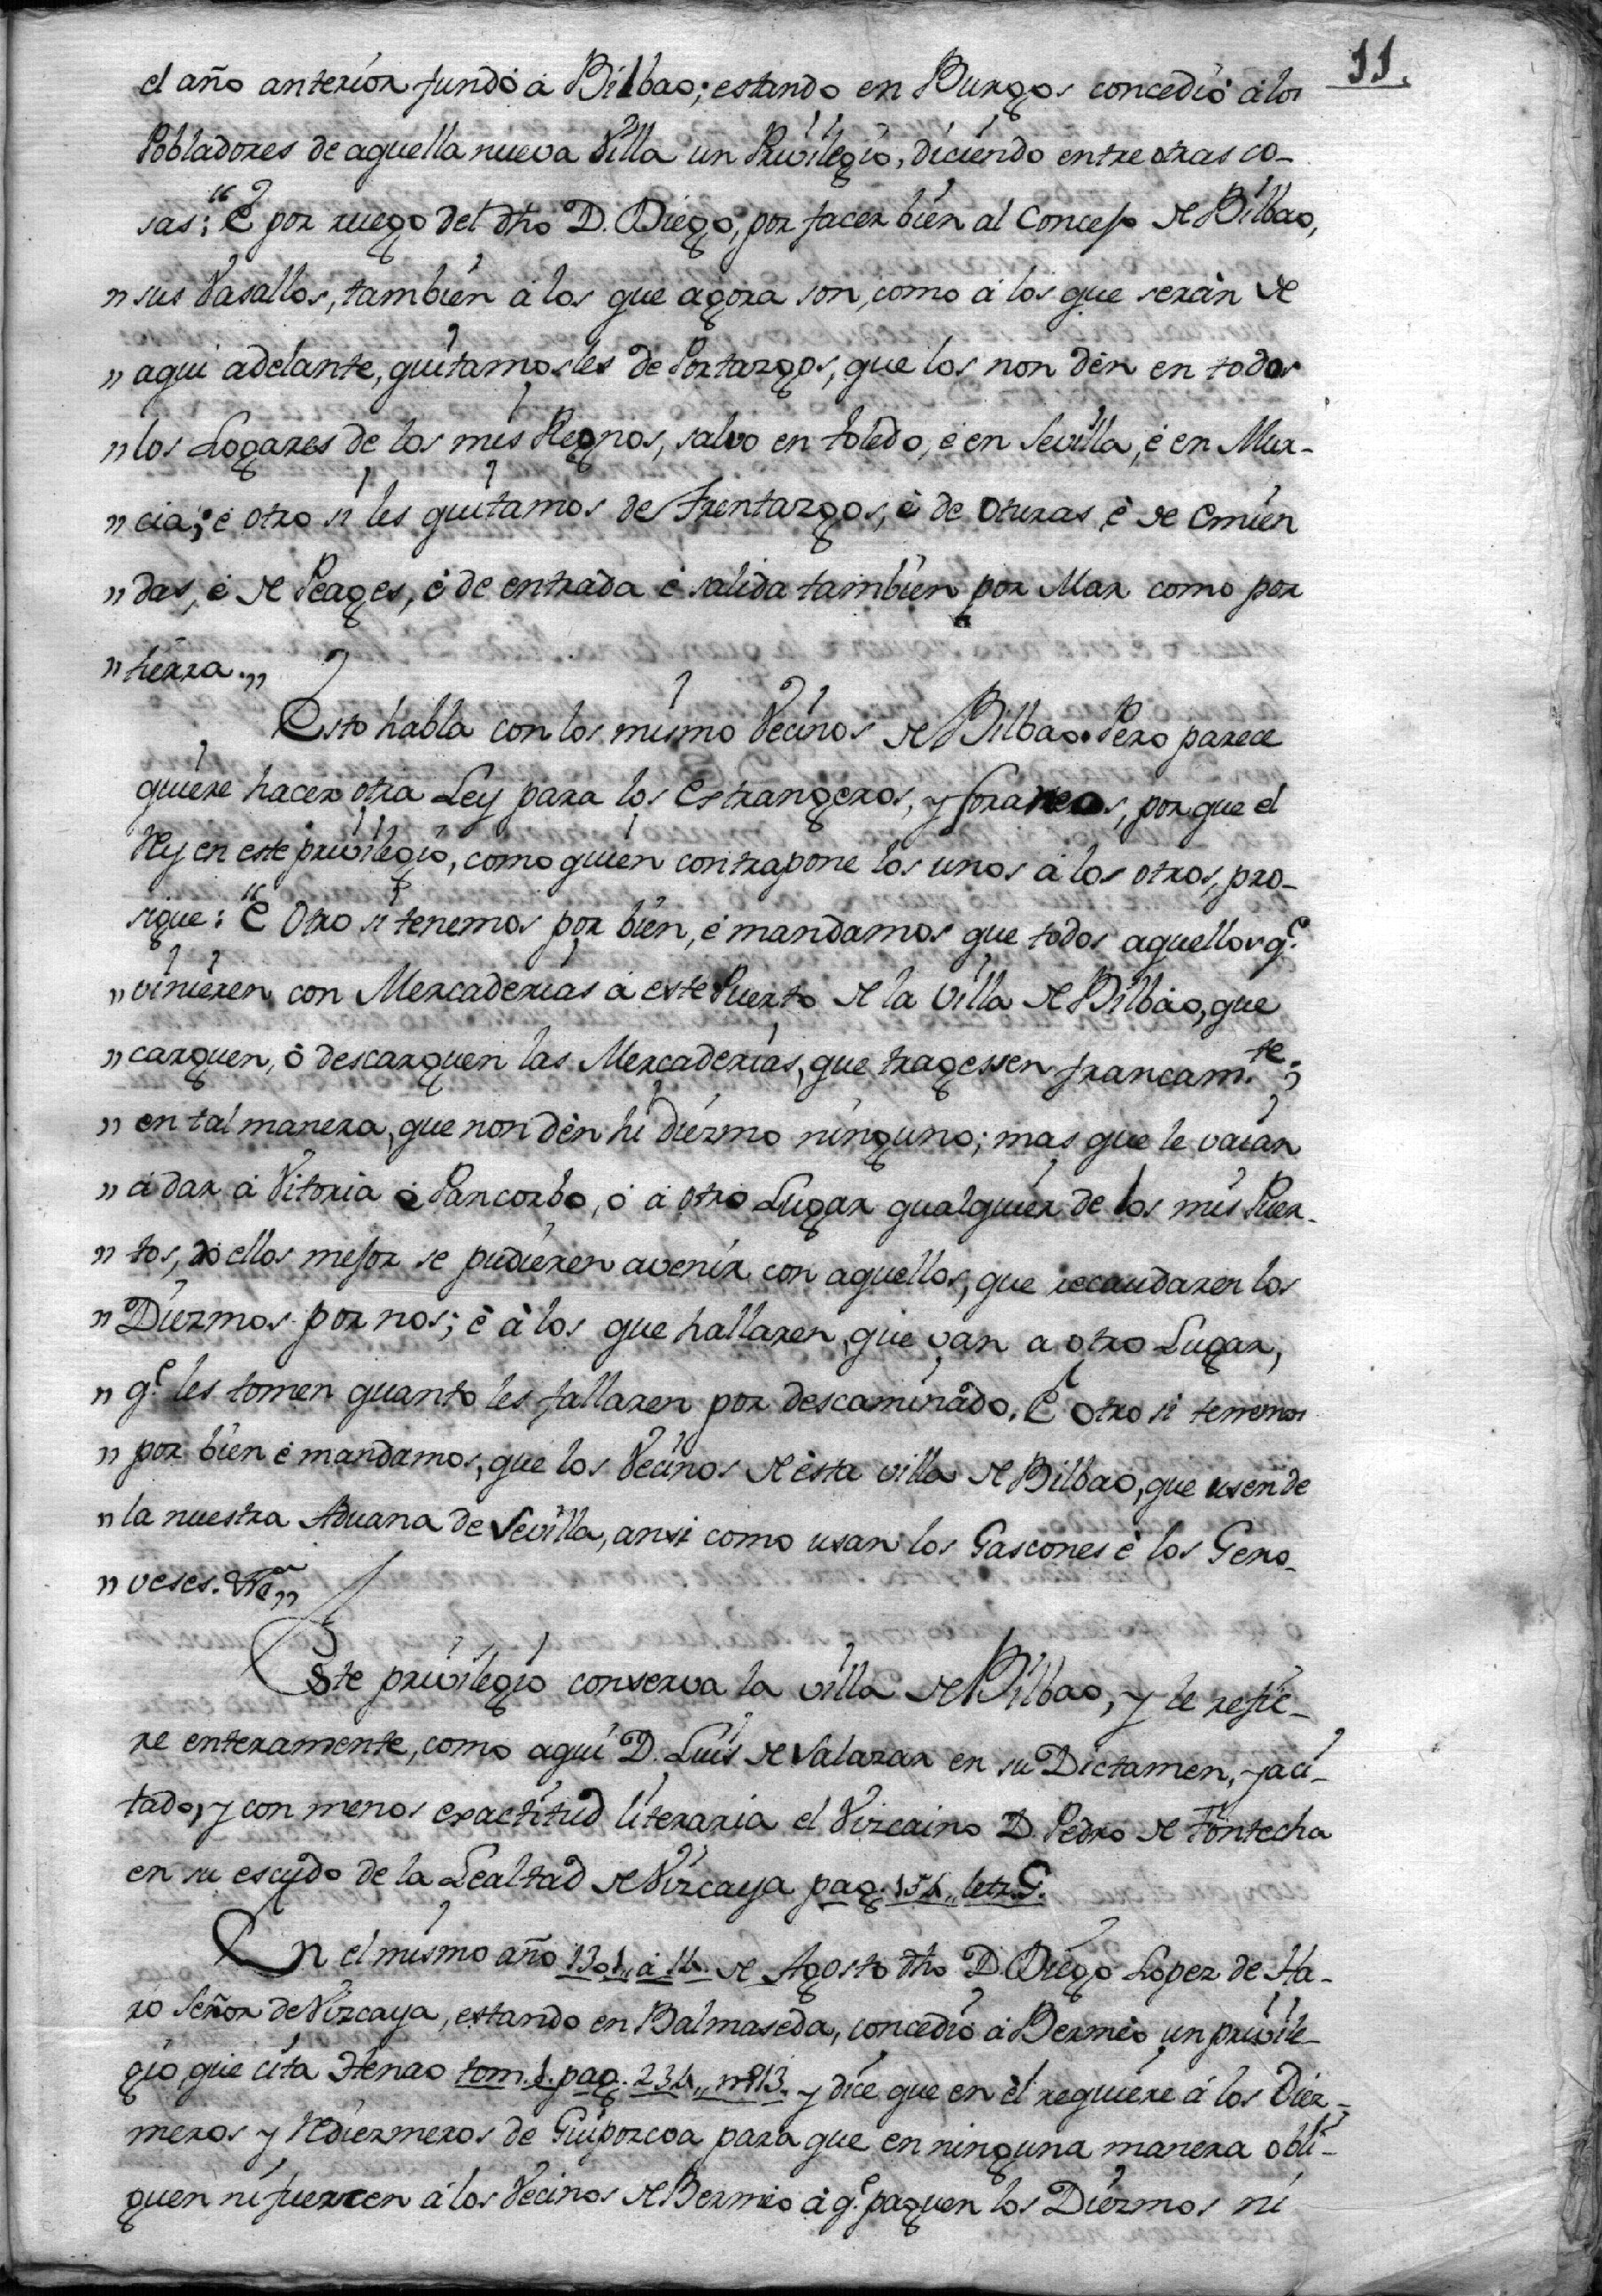 11.
el año anterior fundó á Bilbao; estando en Burgos concedió á los
Pobladores de aquella nueva Villa un Privilegio, diciendo entre otras co-
sas: "E por ruego del dho D. Diego, por facer bien al Concejo de Bilbao,
" sus Vasallos, tambien á los que agora son, como á los que serán de
" aqui adelante, quitamosles de Portazgos, que los non dén en todos
" los Logares de los mis Regnos, salvo en toledo, é en Sevilla, é en Mur-
" cia; é otro si les quitamos de Trentazgos, é de Oturas é de Emien
" das, é de Peages, é de entrada é salida tambien por Mar como por
" tierra."
Esto habla con los mismo Vecinos de Bilbao. Pero parece
quiere hacer otra Ley para los Estrangeros, y foraneos, porque el
Rey en este privilegio, como quien contrapone los unos á los otros, pro-
sigue: "E Otro si tenemos por bien, é mandamos que todos aquellos q.e
" vinieren con Mercaderias á este Puerto de la Villa de Bilbao, que
" carguen, ó descarguen las Mercaderias, que tragessen francam.te;
" en tal manera, que non dén hi diezmo ninguno; mas que le vaian
" á dar á Vitoria ó Pancorbo, ó á otro Lugar qualquier de los mis Puer-
" tos, dó ellos mejor se pudieren avenir con aquellos, que recaudaren los
" Diezmos por nos; é á los que hallaren, que van a otro Lugar,
" q.e les tomen quanto les fallaren por descaminado. E Otro si tenemos
" por bien é mandamos, que los Vecinos de ésta villa de Bilbao, que usen de
" la nuestra Aduana de Sevilla, ansi como usan los Gascones é los Geno-
" veses. &c.a"
Este privilegio conserva la villa de Bilbao, y le refie-
re enteramente, como aqui D. Luis de Salazar en su Dictamen, ya ci-
tado, y con menos exactitud literaria el Vizcaino D. Pedro de Fontecha
en su escudo de la Lealtad de Vizcaya pag. letr. G.
En el mismo año 1301 á de Agosto dho D. Diego Lopez de Ha-
ro Señor de Vizcaya, estando en Balmaseda, concedió á Bermeo un privile-
gio, que cita Henao tom. 1. pag. nº 13. y dice que en él requiere á los Diez-
meros y Rediezmeros de Guipozcoa para que en ninguna manera obli-
guen ni fuercen á los Vecinos de Bermeo á q.e paguen los Diezmos ni